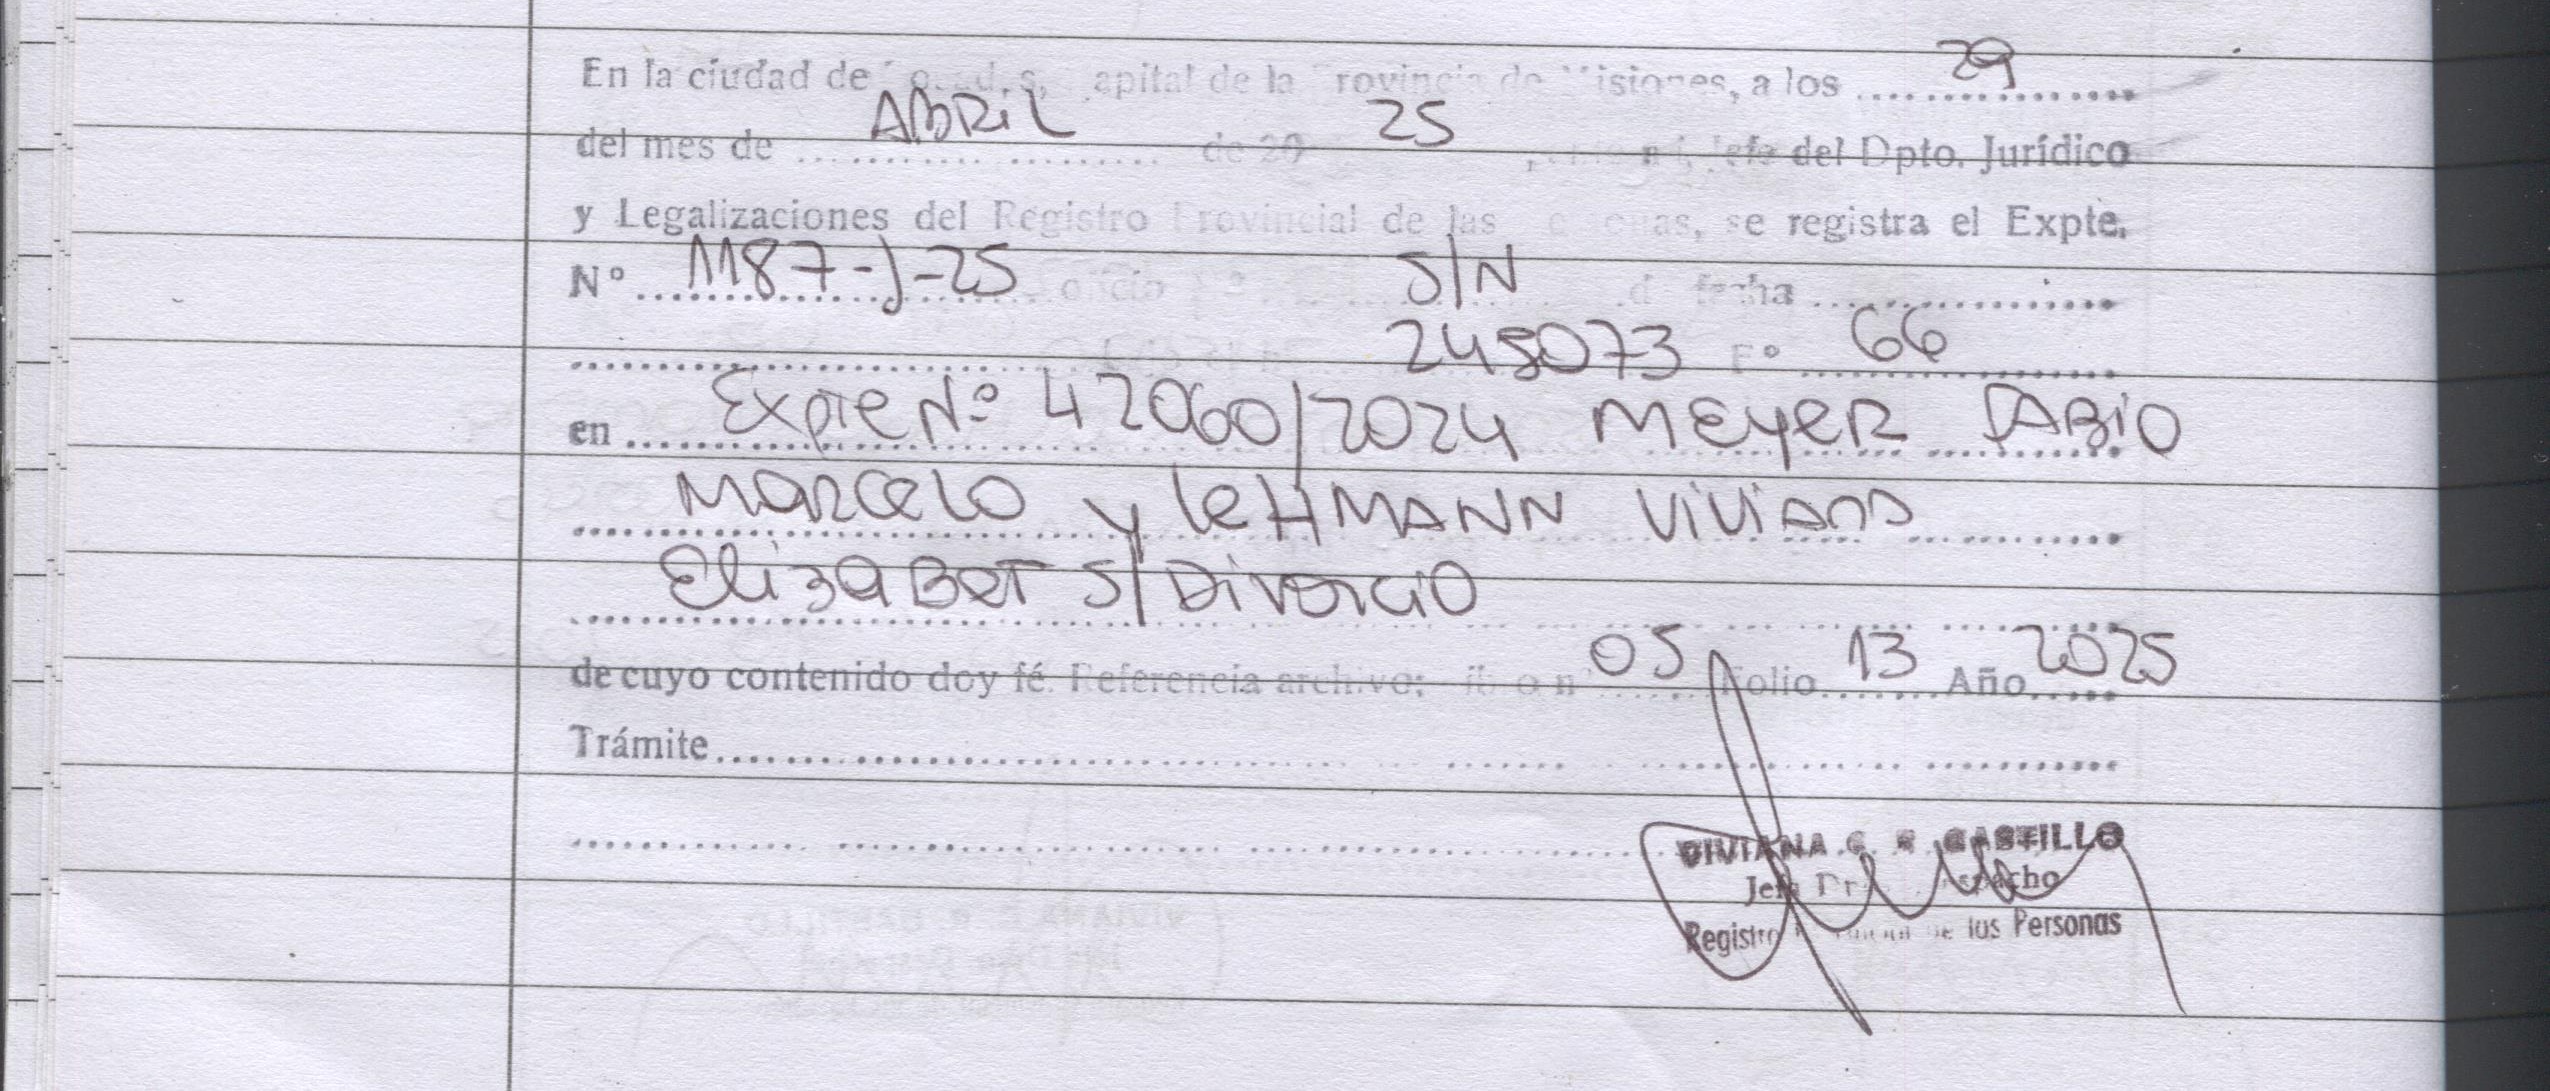 En la ciudad de Posadas, Capital de la Provincia de Misiones, a los 29
del mes de ABRIL de 20 25, Jefe del Dpto. Jurídico
y Legalizaciones del Registro Provincial de las Personas, se registra el Expte.
Nº 1187-J-25 oficio Nº S/N de fecha
245073 Fº 66
en Expte Nº 42060/2024 MEYER FABIO
MARCELO y LEHMANN VIVIANA
ELIZABET S/ DIVORCIO
de cuyo contenido doy fé. Referencia archivo: libro nº 05 Folio 13 Año 2025
Trámite
VIVIANA G. R. CASTILLO
Jefa Despacho
Registro Provincial de las Personas